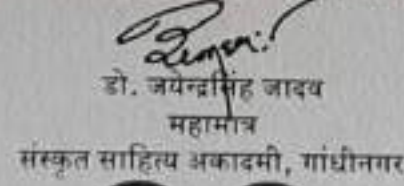 डो. जयेन्द्रसिंह जादव
महामात्र
संस्कृत साहित्य अकादमी, गांधीनगर